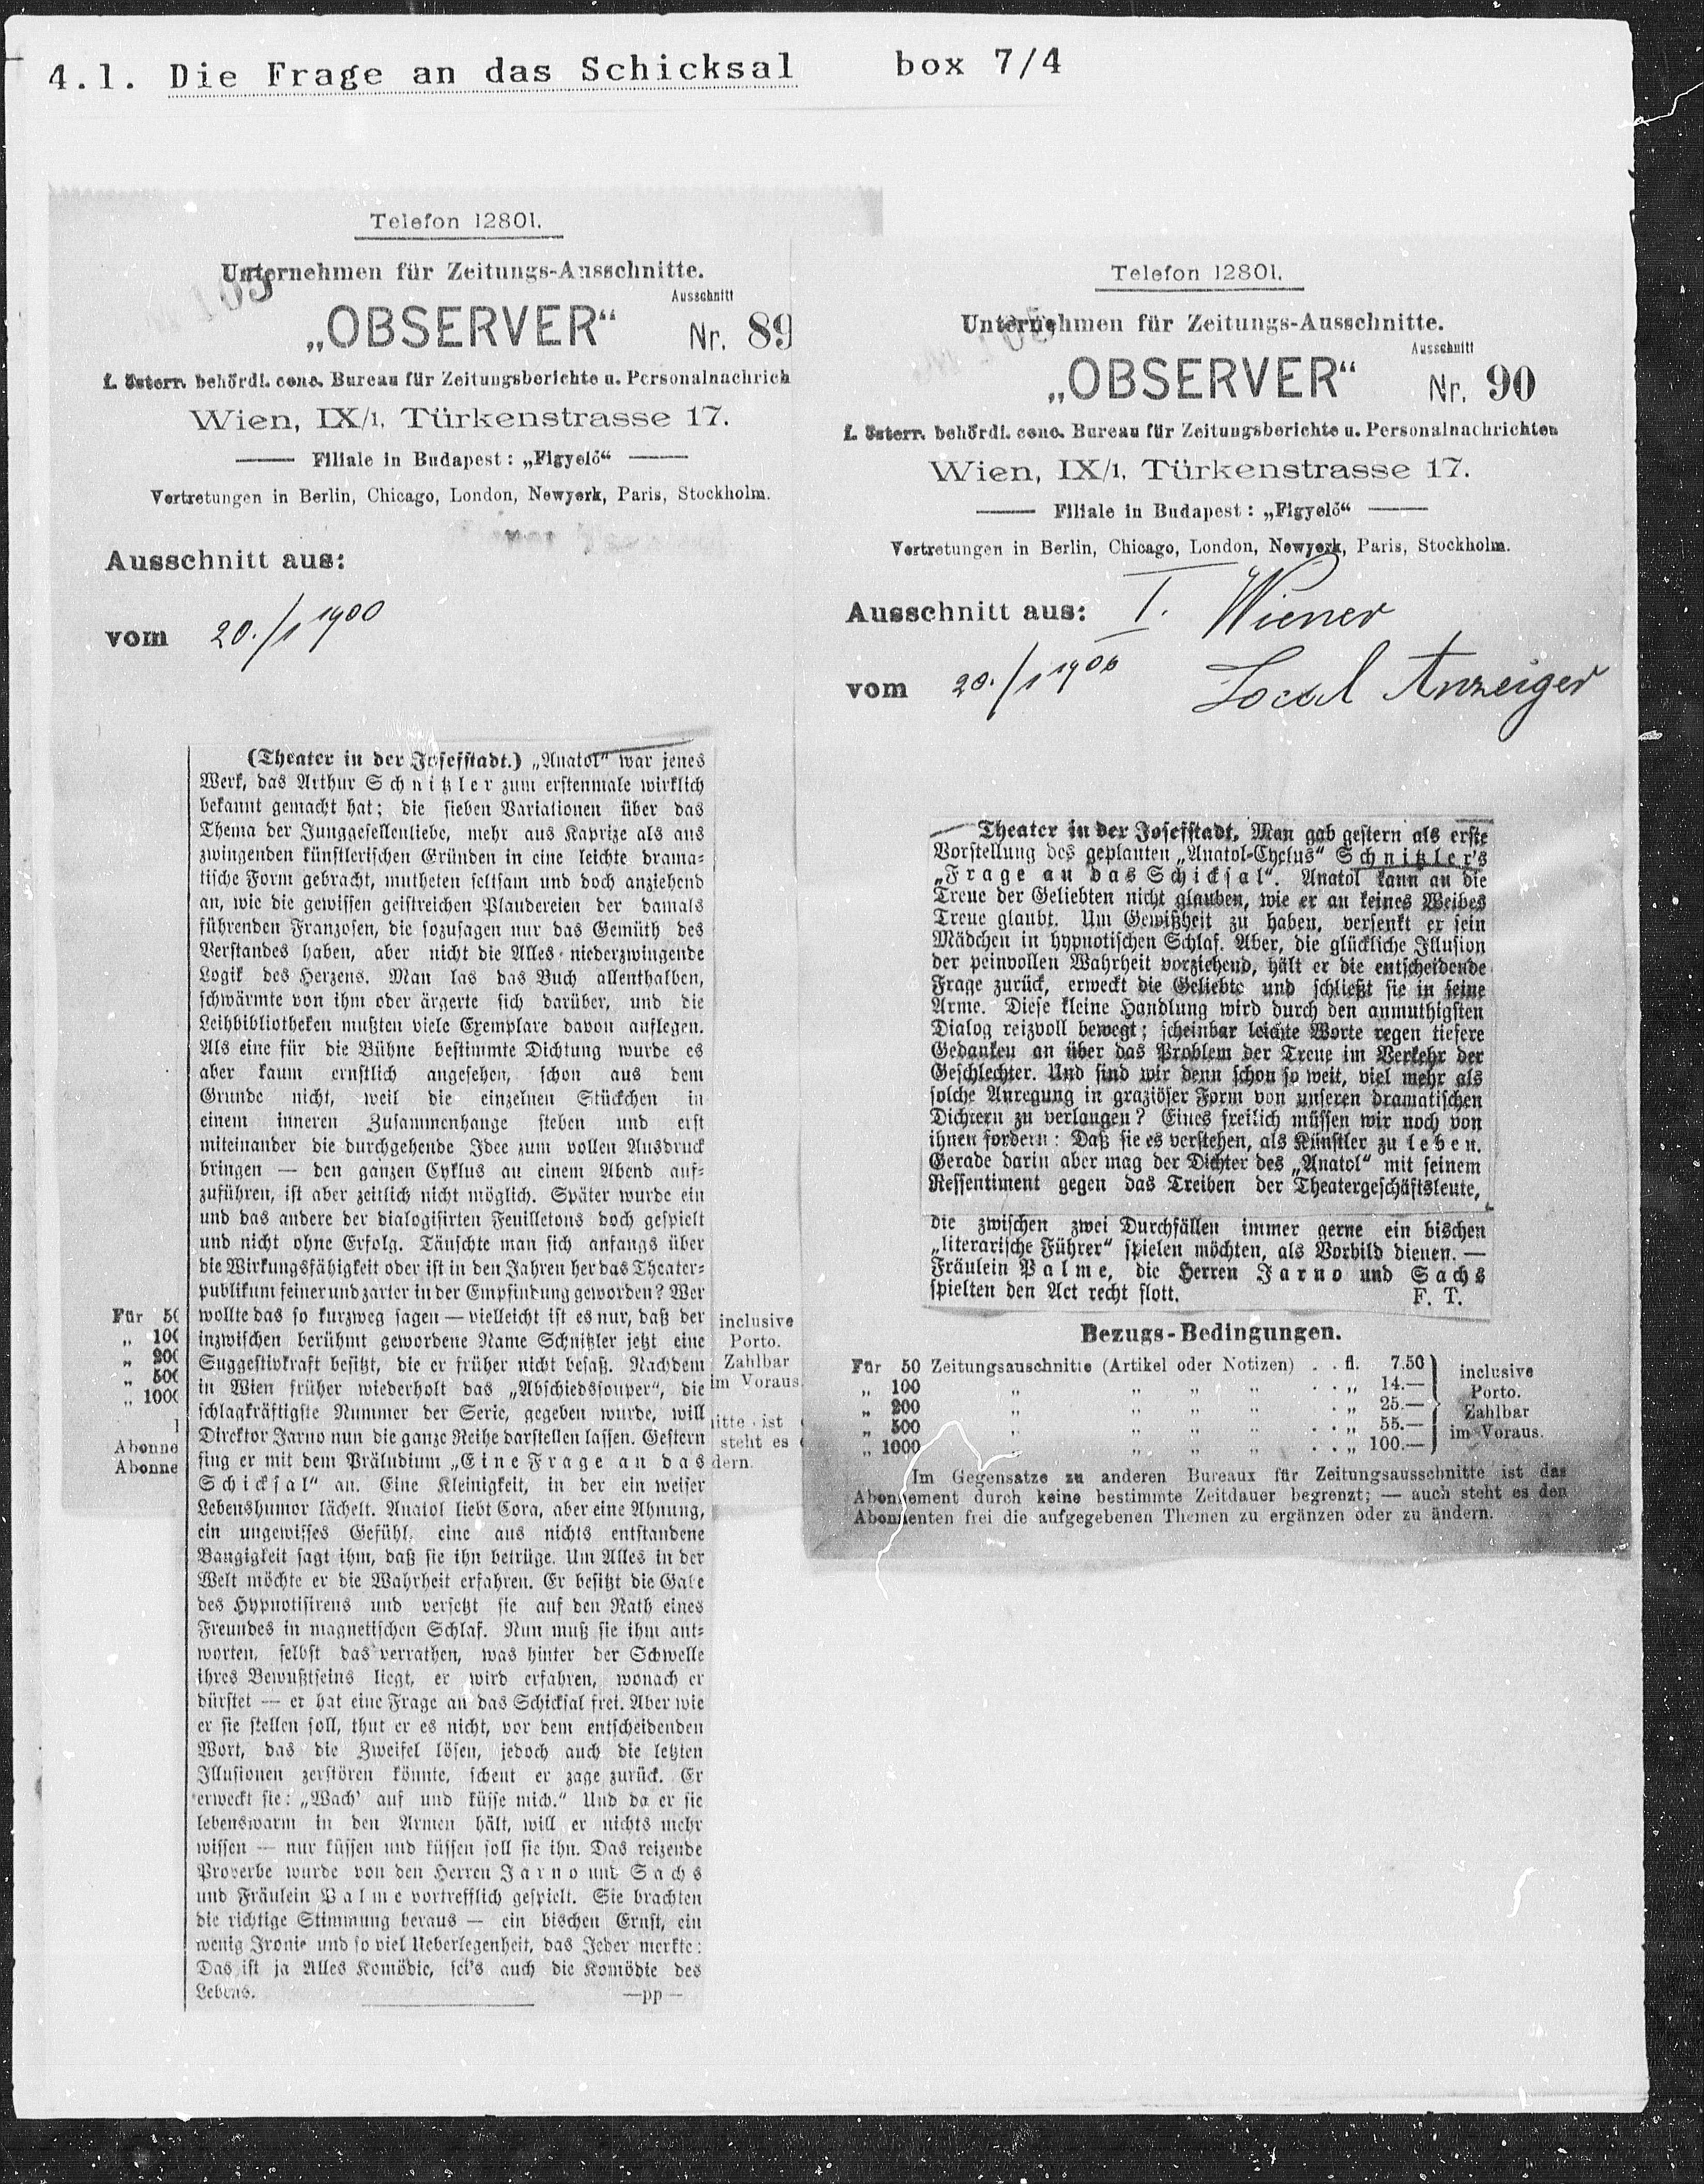 4.1. Die Frage an das Schicksal box 7/4
Telefon 12801.
Unternehmen für Zeitungs-Ausschnitte.
Ausschnitt
„OBSERVER“ Nr. 89
I. österr. behördl. conc. Bureau für Zeitungsberichte u. Personalnachrich
Wien, IX/1, Türkenstrasse 17.
Filiale in Budapest: „Figyelő“
Vertretungen in Berlin, Chicago, London, Newyork, Paris, Stockholm.
Ausschnitt aus:
vom 20./1 1900
(Theater in der Josefstadt.) „Anatol“ war jenes
Werk, das Arthur Schnitzler zum erstenmale wirklich
bekannt gemacht hat; die sieben Variationen über das
Thema der Junggesellenliebe, mehr aus Kaprize als aus
zwingenden künstlerischen Gründen in eine leichte drama-
tische Form gebracht, mutheten seltsam und doch anziehend
an, wie die gewissen geistreichen Plaudereien der damals
führenden Franzosen, die sozusagen nur das Gemüth des
Verstandes haben, aber nicht die Alles niederzwingende
Logik des Herzens. Man las das Buch allenthalben,
schwärmte von ihm oder ärgerte sich darüber, und die
Leihbibliotheken mußten viele Exemplare davon auflegen.
Als eine für die Bühne bestimmte Dichtung wurde es
aber kaum ernstlich angesehen, schon aus dem
Grunde nicht, weil die einzelnen Stückchen in
einem inneren Zusammenhange stehen und erst
miteinander die durchgehende Idee zum vollen Ausdruck
bringen — den ganzen Cyklus an einem Abend auf-
zuführen, ist aber zeitlich nicht möglich. Später wurde ein
und das andere der dialogisirten Feuilletons doch gespielt
und nicht ohne Erfolg. Täuschte man sich anfangs über
die Wirkungsfähigkeit oder ist in den Jahren her das Theater-
publikum feiner und zarter in der Empfindung geworden? Wer
wollte das so kurzweg sagen — vielleicht ist es nur, daß der
inzwischen berühmt gewordene Name Schnitzler jetzt eine
Suggestivkraft besitzt, die er früher nicht besaß. Nachdem
in Wien früher wiederholt das „Abschiedssouper“, die
schlagkräftigste Nummer der Serie, gegeben wurde, will
Direktor Jarno nun die ganze Reihe darstellen lassen. Gestern
fing er mit dem Präludium „Eine Frage an das
Schicksal“ an. Eine Kleinigkeit, in der ein weiser
Lebenshumor lächelt. Anatol liebt Cora, aber eine Ahnung,
ein ungewisses Gefühl, eine aus nichts entstandene
Bangigkeit sagt ihm, daß sie ihn betrüge. Um Alles in der
Welt möchte er die Wahrheit erfahren. Er besitzt die Gabe
des Hypnotisirens und versetzt sie auf den Rath eines
Freundes in magnetischen Schlaf. Nun muß sie ihm ant-
worten, selbst das verrathen, was hinter der Schwelle
ihres Bewußtseins liegt, er wird erfahren, wonach er
dürstet — er hat eine Frage an das Schicksal frei. Aber wie
er sie stellen soll, thut er es nicht, vor dem entscheidenden
Wort, das die Zweifel lösen, jedoch auch die letzten
Illusionen zerstören könnte, scheut er zage zurück. Er
erweckt sie: „Wach' auf und küsse mich.“ Und da er sie
lebenswarm in den Armen hält, will er nichts mehr
wissen — nur küssen und küssen soll sie ihn. Das reizende
Proverbe wurde von den Herren Jarno und Sachs
und Fräulein Palme vortrefflich gespielt. Sie brachten
die richtige Stimmung heraus — ein bischen Ernst, ein
wenig Ironie und so viel Ueberlegenheit, das Jeder merkte:
Das ist ja Alles Komödie, sei's auch die Komödie des
Lebens. —pp—
Für 50
„ 100
„ 200
„ 500
„ 1000
Abonne
Abonne
inclusive
Porto.
Zahlbar
im Voraus.
itte ist
steht es
dern.
Telefon 12801.
Unternehmen für Zeitungs-Ausschnitte.
Ausschnitt
„OBSERVER“ Nr. 90
I. österr. behördl. conc. Bureau für Zeitungsberichte u. Personalnachrichten
Wien, IX/1, Türkenstrasse 17.
Filiale in Budapest: „Figyelő“
Vertretungen in Berlin, Chicago, London, Newyork, Paris, Stockholm.
Ausschnitt aus: I. Wiener
vom 20./1 1900 Local Anzeiger
Theater in der Josefstadt. Man gab gestern als erste
Vorstellung des geplanten „Anatol-Cyclus“ Schnitzler's
„Frage an das Schicksal“. Anatol kann an die
Treue der Geliebten nicht glauben, wie er an keines Weibes
Treue glaubt. Um Gewißheit zu haben, versenkt er sein
Mädchen in hypnotischen Schlaf. Aber, die glückliche Illusion
der peinvollen Wahrheit vorziehend, hält er die entscheidende
Frage zurück, erweckt die Geliebte und schließt sie in seine
Arme. Diese kleine Handlung wird durch den anmuthigsten
Dialog reizvoll bewegt; scheinbar leichte Worte regen tiefere
Gedanken an über das Problem der Treue im Verkehr der
Geschlechter. Und sind wir denn schon so weit, viel mehr als
solche Anregung in graziöser Form von unseren dramatischen
Dichtern zu verlangen? Eines freilich müssen wir noch von
ihnen fordern: Daß sie es verstehen, als Künstler zu leben.
Gerade darin aber mag der Dichter des „Anatol“ mit seinem
Ressentiment gegen das Treiben der Theatergeschäftsleute,
die zwischen zwei Durchfällen immer gerne ein bischen
„literarische Führer“ spielen möchten, als Vorbild dienen. —
Fräulein Palme, die Herren Jarno und Sachs
spielten den Act recht flott. F. T.
Bezugs-Bedingungen.
Für 50 Zeitungsauschnitte (Artikel oder Notizen) . . fl. 7.50
„ 100 „ „ „ „ . . „ 14.—
„ 200 „ „ „ „ . . „ 25.—
„ 500 „ „ „ „ . . „ 55.—
„ 1000 „ „ „ „ . . „ 100.—
inclusive
Porto.
Zahlbar
im Voraus.
Im Gegensatze zu anderen Bureaux für Zeitungsausschnitte ist das
Abonnement durch keine bestimmte Zeitdauer begrenzt; — auch steht es den
Abonnenten frei die aufgegebenen Themen zu ergänzen oder zu ändern.